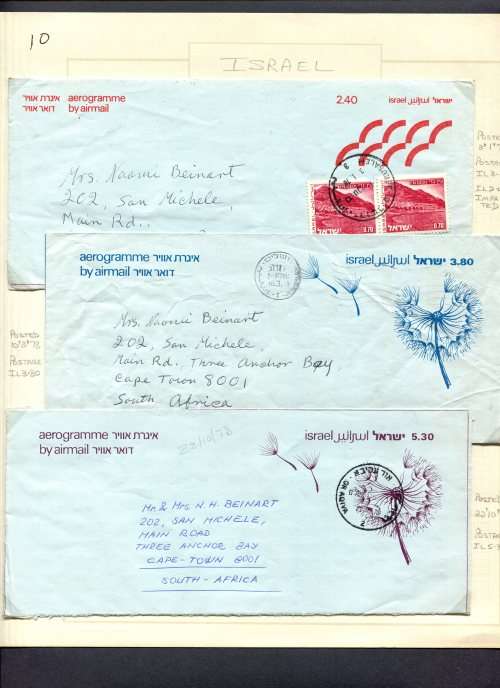 10
ISRAEL
אינרת אוויר aerogramme
דואר אוויר by airmail
2.40
israel اسرائيل ישראל
Mrs. Naomi Beinart
202, San Michele,
Main Rd.
JERUSALEM
0.70 0.70
POSTED
IL3-
IMPR
TED
aerogramme איגרת אוויר
by airmail דואר אוויר
israel اسرائيل ישראל 3.80
Mrs. Naomi Beinart
202, San Michele,
Main Rd. Three Anchor Bay
Cape Town 8001
South Africa
POSTED
10/3/78
POSTAGE
IL3/80
aerogramme איגרת אוויר
by airmail דואר אוויר
22/10/78
israel اسرائيل ישראל 5.30
MR & MRS N.H. BEINART
202, SAN MICHELE,
MAIN ROAD
THREE ANCHOR BAY
CAPE-TOWN 8001
SOUTH-AFRICA
POSTE
22/10
POSTA
IL5-